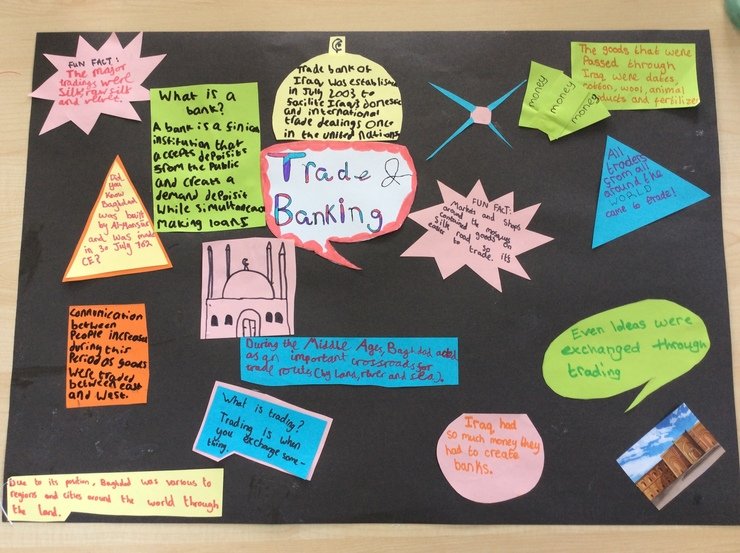 FUN FACT:
The major
tradings were
Silk, raw silk
and velvet.
What is a
bank?
A bank is a finion
institution that
accepts deposits
from the Public
and creats a
demand deposit
while simultaneous
Making loans
Trade bank of
Iraq was establised
in July 2003 to
facilite Iraq's domestic
and international
trade dealings once
in the united nations
money
money
money
The goods that were
Passed through
Iraq were dates,
cotton, wool, animal
products and fertilizer
Trade &
Banking
All
traders
from all
around the
WORLD
came to trade!
Did
you
know
Baghdad
was built
by Al-Mansur
and was made
in 30 July 762
CE?
FUN FACT:
Markets and shops
around the mosques
contained goods on
Silk road so its
easier to trade.
Connunication
between
People increased
during this
Period as goods
Were traded
between east
and West.
During the Middle Ages, Baghdad acted
as an important crossroads for
trade routes (by land, river and sea).
Even Ideas were
exchanged through
trading
What is trading?
Trading is when
you exchange some-
thing.
Iraq had
so much money they
had to create
banks.
Due to its position, Baghdad was various to
regions and cities around the world through
the land.